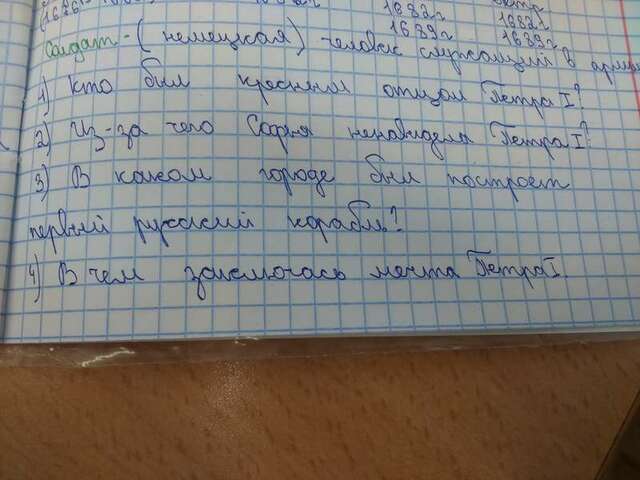 (1686 1682г Петр
1689г 1682г
Солдат - ( немецкая) человек служащий в армии 1689г
1) Кто был крёсным отцом Петра I?
2) Из-за чего Софья ненавидела Петра I?
3) В каком городе был построен
первый русский корабль?
4) В чем заключалась мечта Петра I